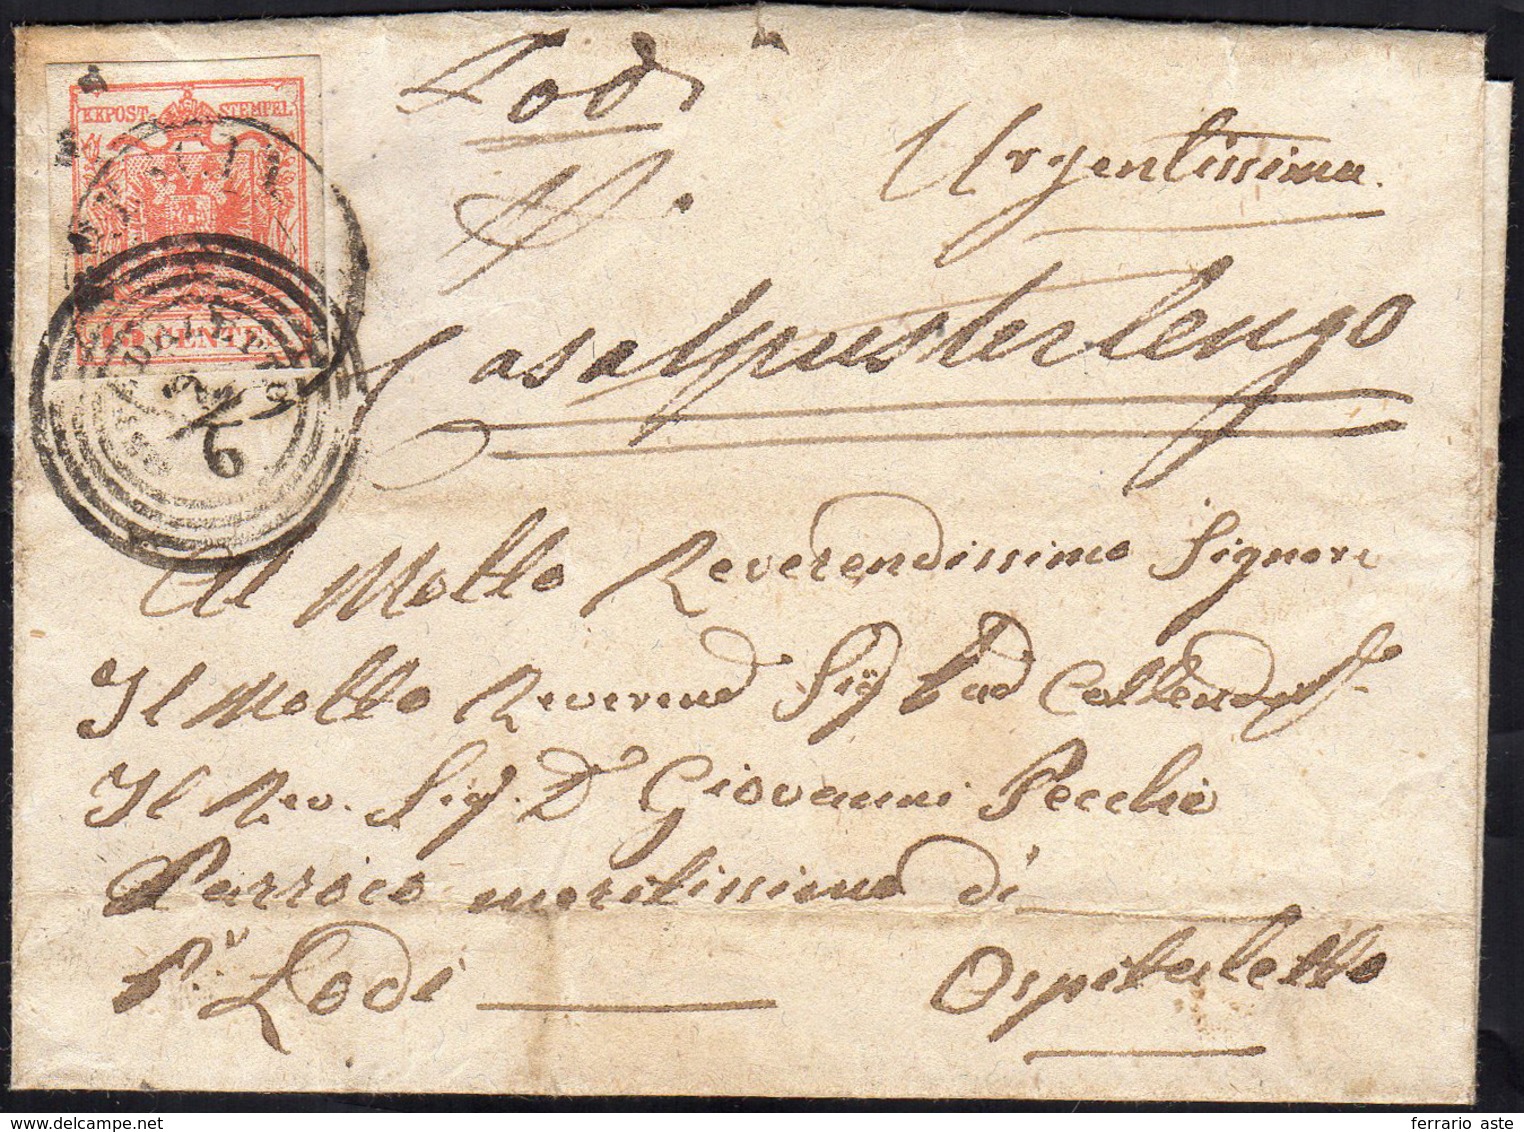 Lodi
Urgentissima
KKPOST STEMPEL
15 CENTES
Casalpusterlengo
26/6
Al Molto Reverendissimo Signore
Il Molto Reverend Sig
Il Rev. Sig. D Giovanni Pecchio
Parroco meritissimo di
P. Lodi Ospitaletto
ferrario aste